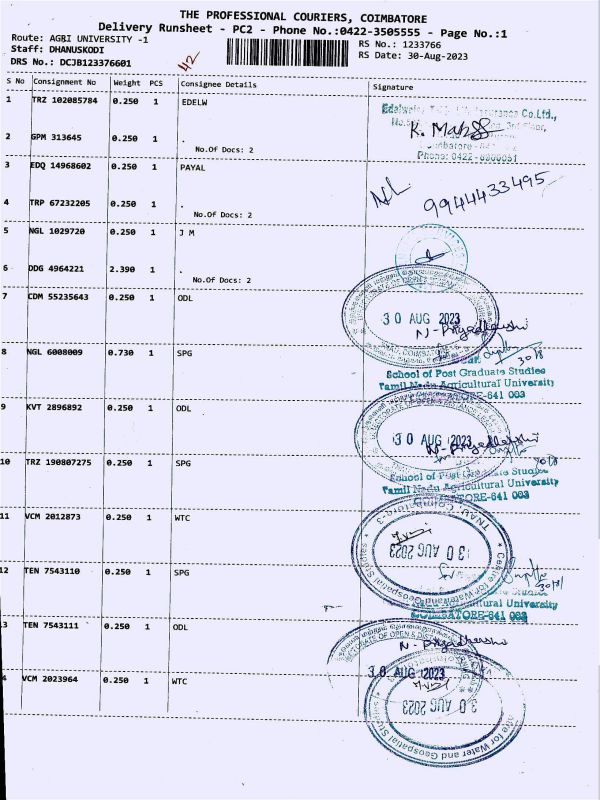 THE PROFESSIONAL COURIERS, COIMBATORE
Delivery Runsheet - PC2 - Phone No.:0422-3505555 - Page No.:1
Route: AGRI UNIVERSITY -1
RS No.: 1233766
Staff: DHANUSKODI
RS Date: 30-Aug-2023
DRS No.: DCJB123376601
42
S No Consignment No Weight PCS Consignee Details Signature
1 TRZ 102085784 0.250 1 EDELW
Insurance Co.Ltd.,
3rd Floor,
K.
2 GPM 313645 0.250 1 .
No.Of Docs: 2
Phone: 0422 -
3 EDQ 14968602 0.250 1 PAYAL
9944433495
4 TRP 67232205 0.250 1 .
No.Of Docs: 2
5 NGL 1029720 0.250 1 J M
6 DDG 4964221 2.390 1 .
No.Of Docs: 2
7 CDM 55235643 0.250 1 ODL
30 AUG 2023
N. Priyadharshi
30/8
8 NGL 6008009 0.730 1 SPG
School of Post Graduate Studies
Tamil Nadu Agricultural University
COIMBATORE-641 003
9 KVT 2896892 0.250 1 ODL
30 AUG 2023
N. Priyadharshi
30/8
10 TRZ 190807275 0.250 1 SPG
School of Post Graduate Studies
Tamil Nadu Agricultural University
COIMBATORE-641 003
11 VCM 2012873 0.250 1 WTC
TNAU, Coimbatore-3
30 AUG 2023
Centre for Water and Geospatial Studies
12 TEN 7543110 0.250 1 SPG
30/8
Agricultural University
COIMBATORE-641 003
3 TEN 7543111 0.250 1 ODL
N. Priyadharshi
DIRECTORATE OF OPEN &
30 AUG 2023
4 VCM 2023964 0.250 1 WTC
30 AUG 2023
Centre for Water and Geospatial Studies